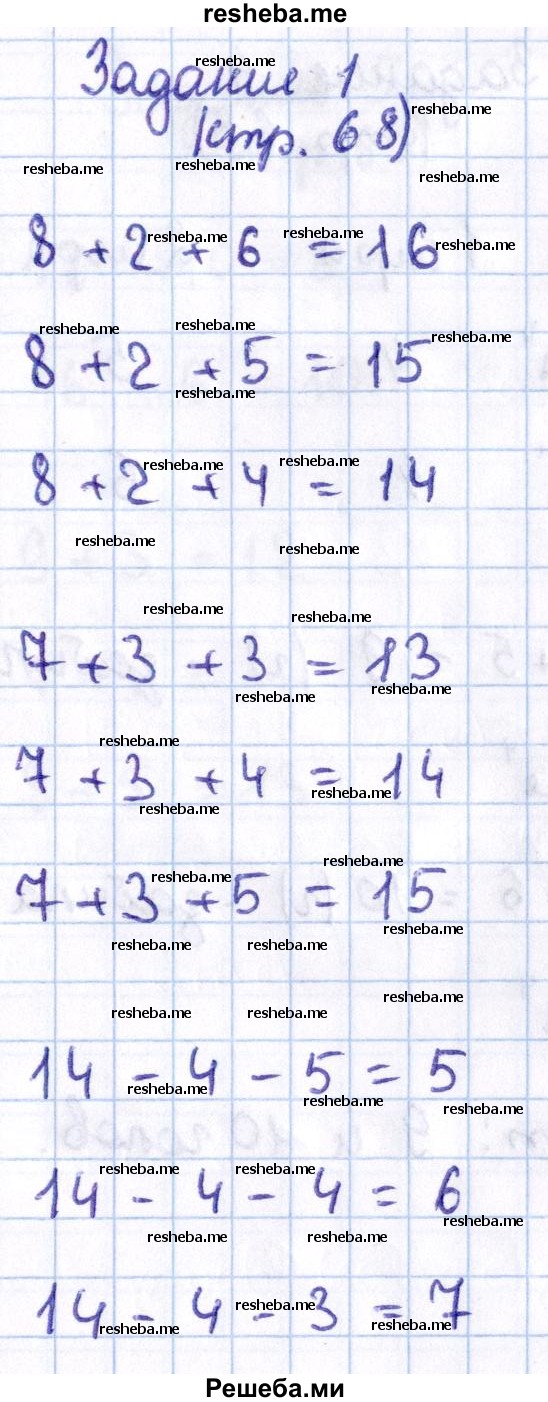 resheba.me
Задание 1
(стр. 68)
8 + 2 + 6 = 16
8 + 2 + 5 = 15
8 + 2 + 4 = 14
7 + 3 + 3 = 13
7 + 3 + 4 = 14
7 + 3 + 5 = 15
14 - 4 - 5 = 5
14 - 4 - 4 = 6
14 - 4 - 3 = 7
Решеба.ми